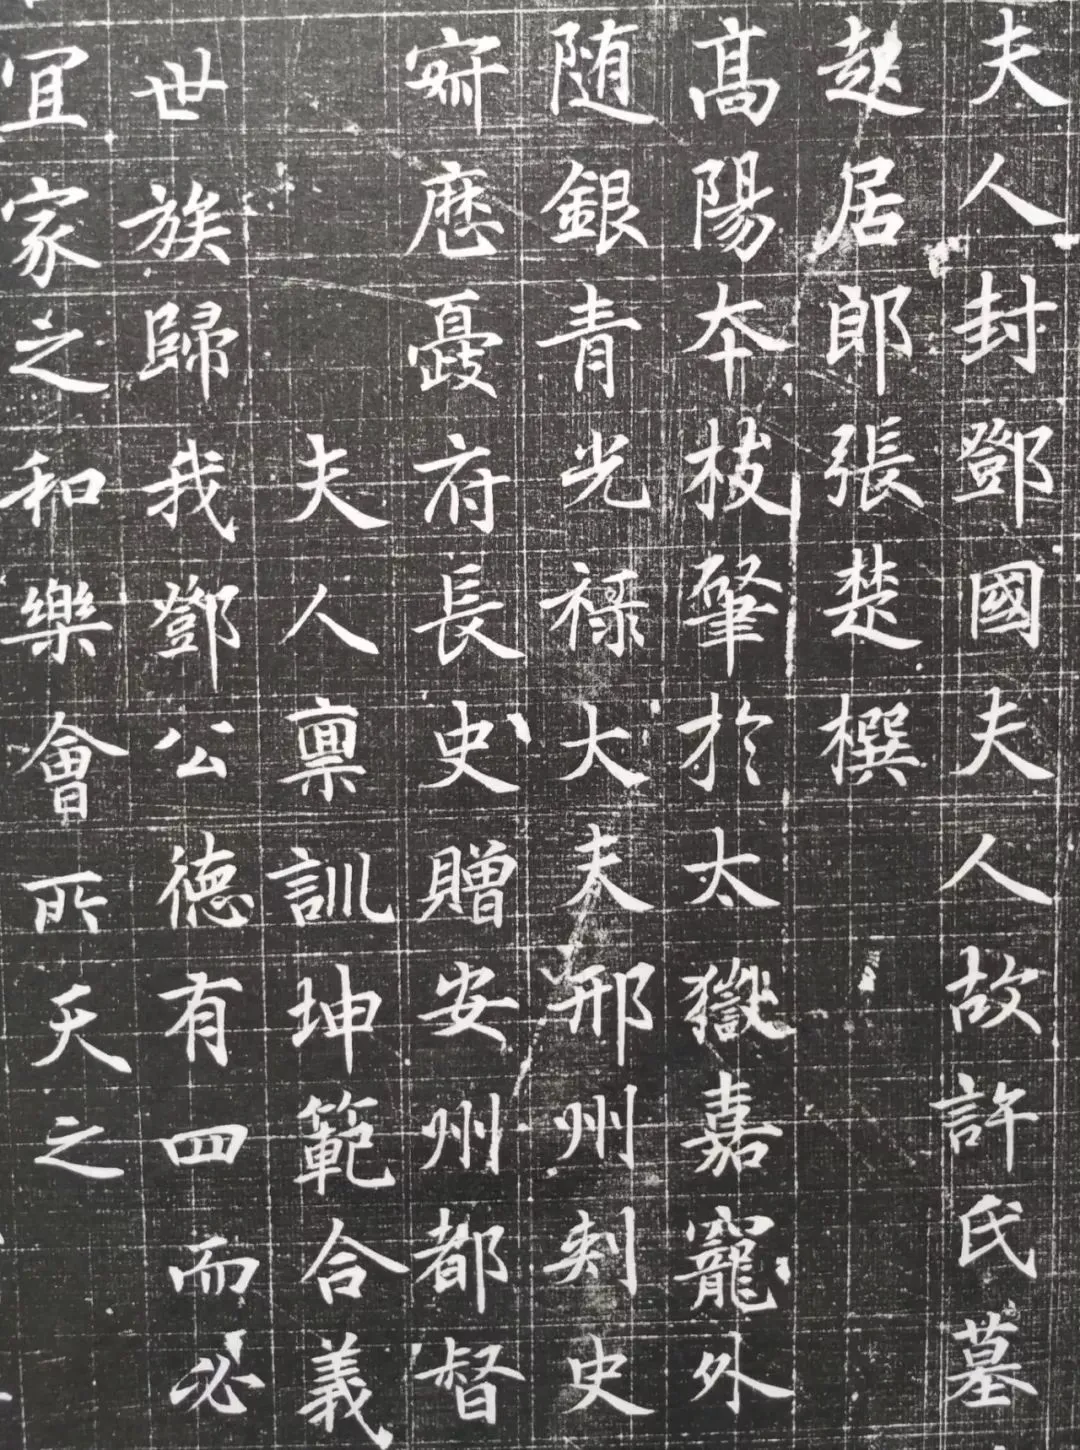 夫人封鄧國夫人故許氏墓
起居郎張楚撰
髙陽夲枝肇於太嶽嘉寵外
随銀青光禄大夫邢州刾史
寂歷夔府長史贈安州都督
夫人禀訓坤範合義
世族歸我鄧公德有四而必
宜家之和樂會所天之